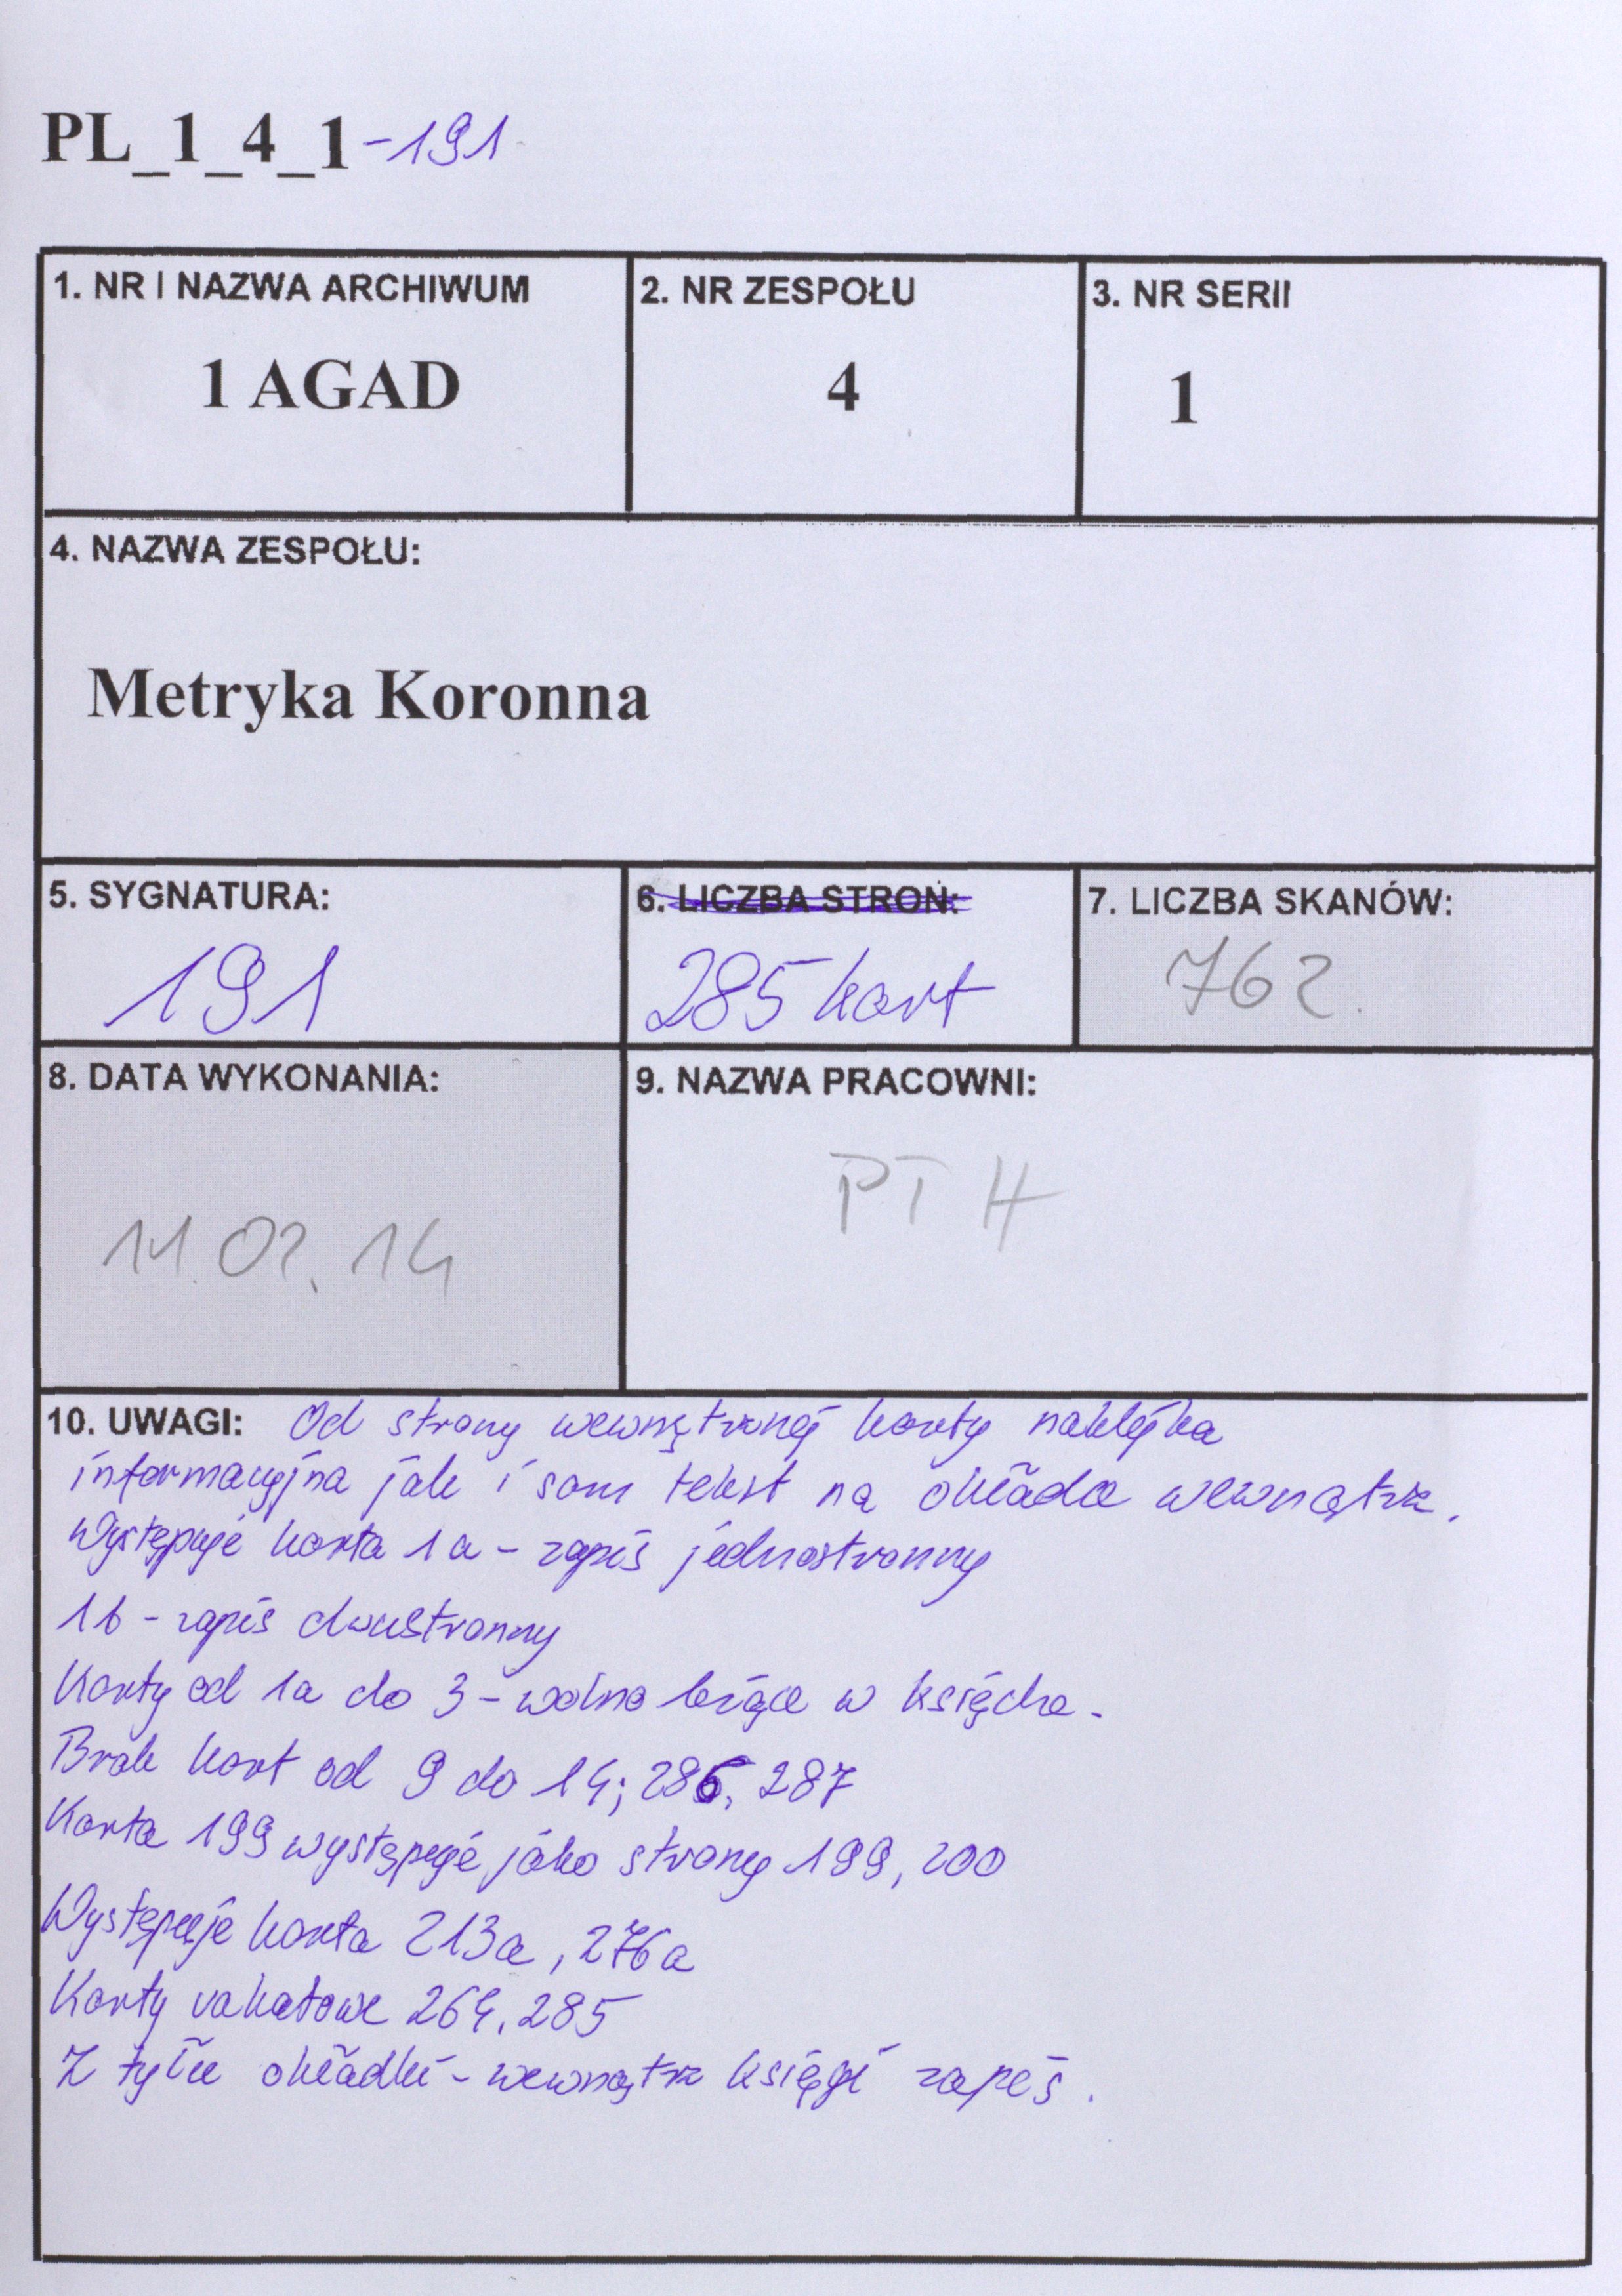 PL_1_4_1-191
1. NR I NAZWA ARCHIWUM
1 AGAD
2. NR ZESPOŁU
4
3. NR SERII
1
4. NAZWA ZESPOŁU:
Metryka Koronna
5. SYGNATURA:
191
6. LICZBA STRON:
285 kart
7. LICZBA SKANÓW:
762
8. DATA WYKONANIA:
11.02.14
9. NAZWA PRACOWNI:
PTH
10. UWAGI: Od strony wewnętrznej karty naklejka
informacyjna jak i sam tekst na okładce wewnątrz.
Występuje karta 1a - zapis jednostronny
1b - zapis dwustronny
Karty od 1a do 3 - wolno leżące w księdze.
Brak kart od 9 do 14; 286, 287
Karta 199 występuje jako strony 199, 200
Występuje karta 213a, 276a
Karty vakatowe 264, 285
Z tyłu okładki - wewnątrz księgi zapis.